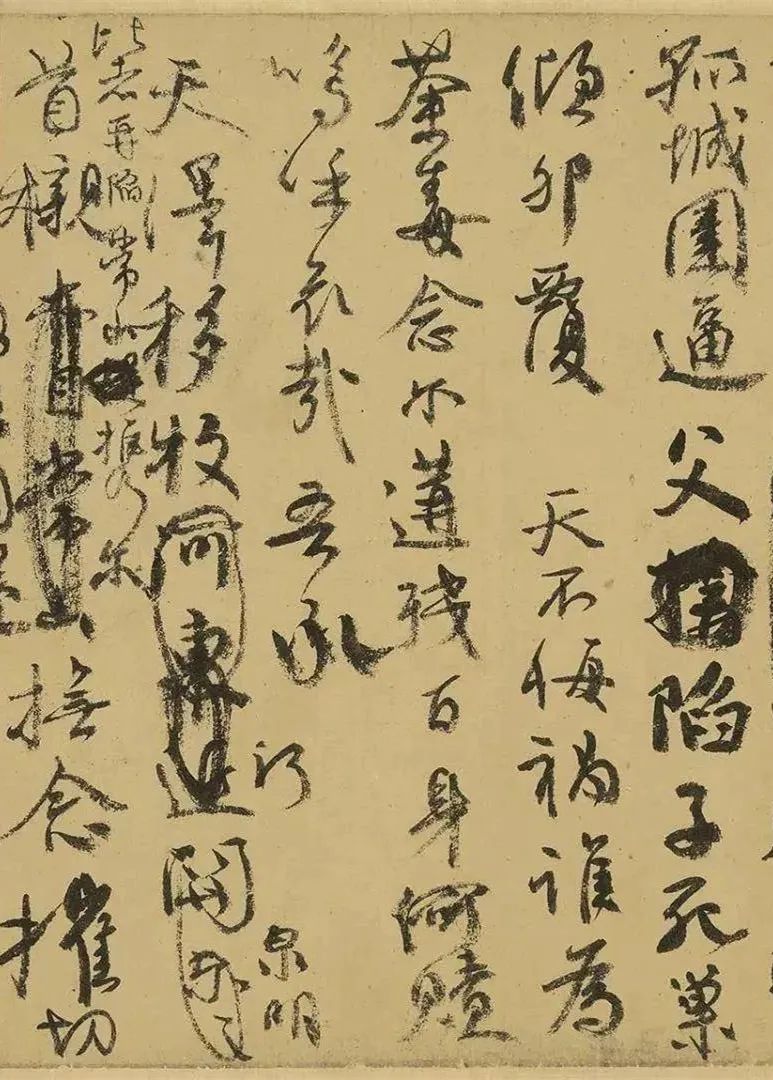 孤城圍逼父陷子死巢
傾卵覆 天不悔禍誰為
荼毒念尔遘殘百身何贖
嗚呼哀哉吾承
行 泉明
天澤移牧河東近關
比者再陷常山攜尔
首櫬亦自常山撫念摧切